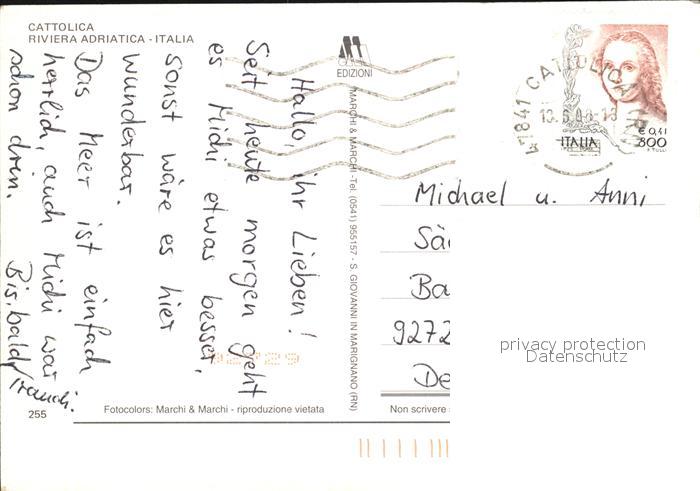 CATTOLICA
RIVIERA ADRIATICA - ITALIA
EDIZIONI
MARCHI & MARCHI - Tel. (0541) 955157 - S. GIOVANNI IN MARIGNANO (RN)
47841 CATTOLICA (RN)
€ 0,41
800
ITALIA
Hallo, ihr Lieben!
Seit heute morgen geht
es Michi etwas besser,
sonst wäre es hier
wunderbar.
Das Meer ist einfach
herrlich, auch Michi war
schon drin.
Bis bald,
Michael u. Anni
Sä
Ba
9272
De
92729
privacy protection
Datenschutz
255
Fotocolors: Marchi & Marchi - riproduzione vietata
Non scrivere